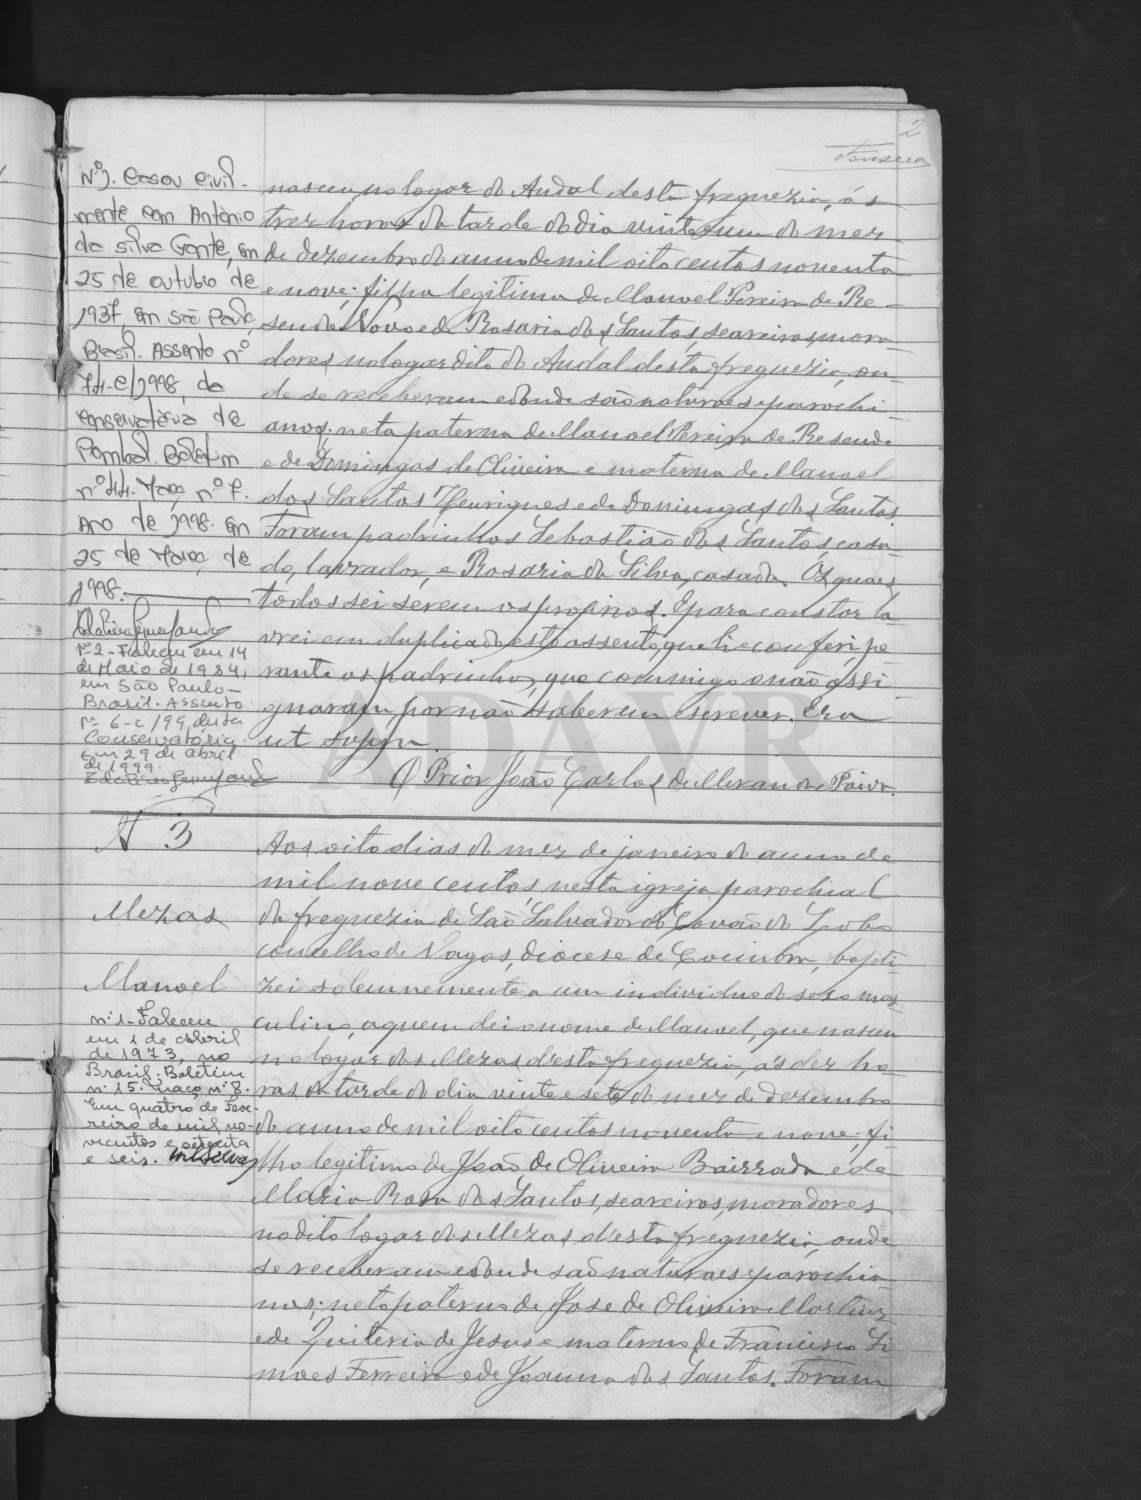 2
Fonseca
Nº 1. Casou civil-
mente com António
da Silva Gante, em
25 de outubro de
1937, em São Paulo,
Brasil. Assento nº
74-C/1998, da
Conservatória de
Pombal. Boletim
nº 44. Maço nº 7.
Ano de 1998. Em
25 de Março, de
1998.
nº 2 - Faleceu em 14
de Maio de 1984,
em São Paulo -
Brasil. Assento
nº 6-C/99, desta
Conservatória.
Em 29 de abril
de 1999.
nasceu no logar do Andal desta freguezia, ás
trez horas da tarde do dia vinte e um do mez
de dezembro do anno de mil oito centos noventa
e nove; filha legitima de Manoel Pereira de Re-
sende Novo e de Rosaria dos Santos, seareiros, mora-
dores no logar dito do Andal desta freguezia, on-
de se receberam e donde são naturaes e parochi-
anos; neta paterna de Manoel Pereira de Resende
e de Domingas de Oliveira e materna de Manoel
dos Santos Henriques e de Domingas dos Santos.
Foram padrinhos Sebastião dos Santos, casa-
do, lavrador, e Rosaria da Silva, casada. Os quaes
todos sei serem os proprios. E para constar la-
vrei em duplicado este assento, que li e conferi pe-
rante os padrinhos, que commigo o não assi-
gnaram, por não saberem escrever. Era
ut supra.
O Prior João Carlos de Paiva.
Nº 3
Mezas
Manoel
nº 1 - Faleceu
em 1 de Abril
de 1973, no
Brasil. Boletim
nº 15. Maço nº 8.
Em quatro de Feve-
reiro de mil no-
vecentos e setenta
e seis.
Aos oito dias do mez de janeiro do anno de
mil nove centos, nesta igreja parochial
da freguezia de São Salvador do Covão do Lobo
concelho de Vagos, diocese de Coimbra, bapti-
zei solemnemente a um individuo do sexo mas-
culino, a quem dei o nome de Manoel, que nasceu
no logar das Mezas d'esta freguezia, ás dez ho-
ras da tarde do dia vinte e sete do mez de dezembro
do anno de mil oito centos noventa e nove; fi-
lho legitimo de João de Oliveira Bairrada e de
Maria Rosa dos Santos, seareiros, moradores
no dito logar das Mezas d'esta freguezia, onde
se receberam e donde são naturaes e parochia-
nos; neto paterno de José de Oliveira Martins
e de Quiteria de Jesus e materno de Francisco Si-
mões Ferreira e de Joanna dos Santos. Foram
ADAVR